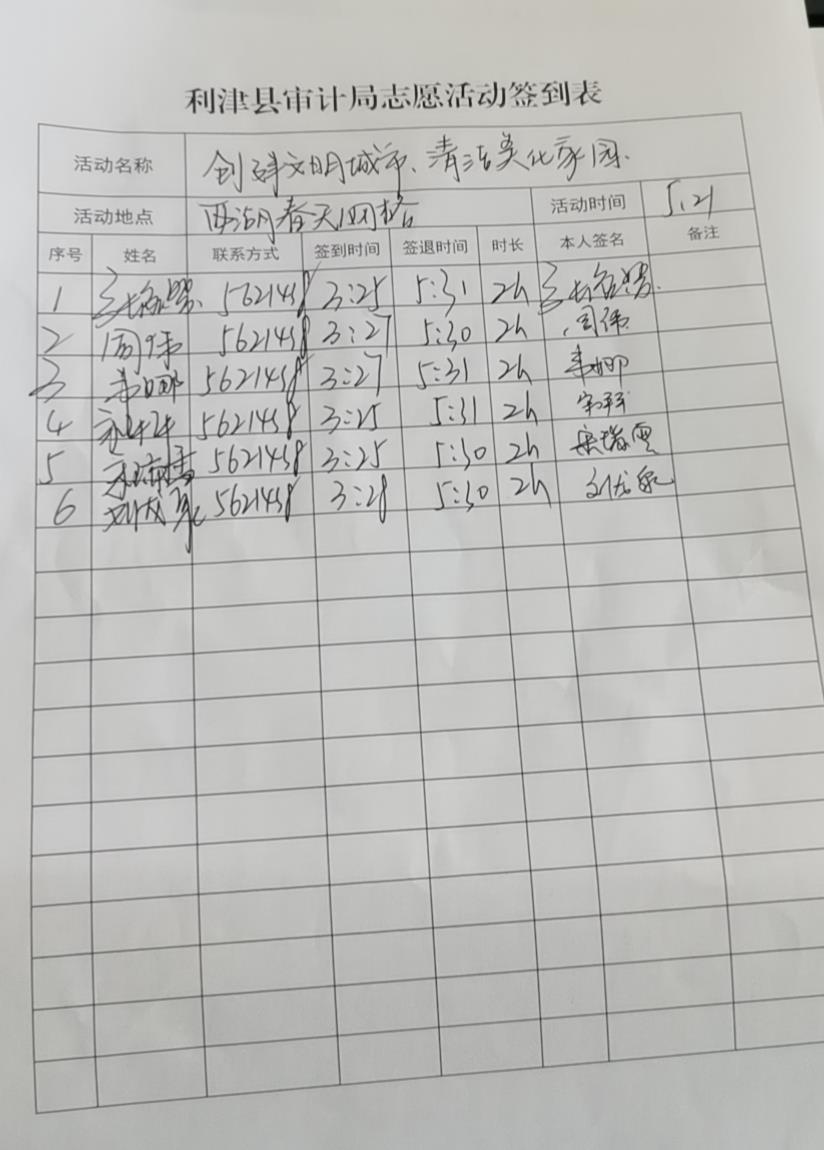 利津县审计局志愿活动签到表
活动名称 创建文明城市、清洁美化家园.
活动地点 西湖春天网格 活动时间 5.21
序号 姓名 联系方式 签到时间 签退时间 时长 本人签名 备注
1 5621458 3:25 5:31 2h
2 周伟 5621458 3:27 5:30 2h 周伟
3 5621458 3:27 5:31 2h
4 5621458 3:25 5:31 2h
5 5621458 3:25 5:30 2h
6 5621458 3:28 5:30 2h